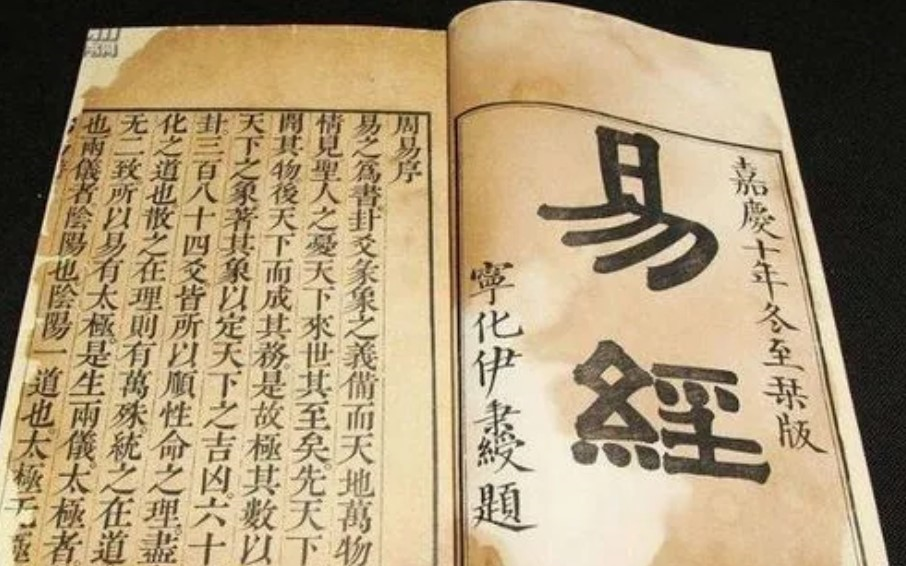 嘉慶十年冬至栞版
易經
寧化伊秉綬題
周易序
易之爲書。卦爻彖象之義備而天地萬物
情見聖人之憂天下來世其至矣。先天下
開其物後天下而成其務。是故極其數以
天下之象著其象以定天下之吉凶。六十
卦。三百八十四爻皆所以順性命之理。盡
化之道也散之在理則有萬殊。統之在道
无二致所以易有太極。是生兩儀。太極者
也兩儀者陰陽也陰陽一道也太極无極